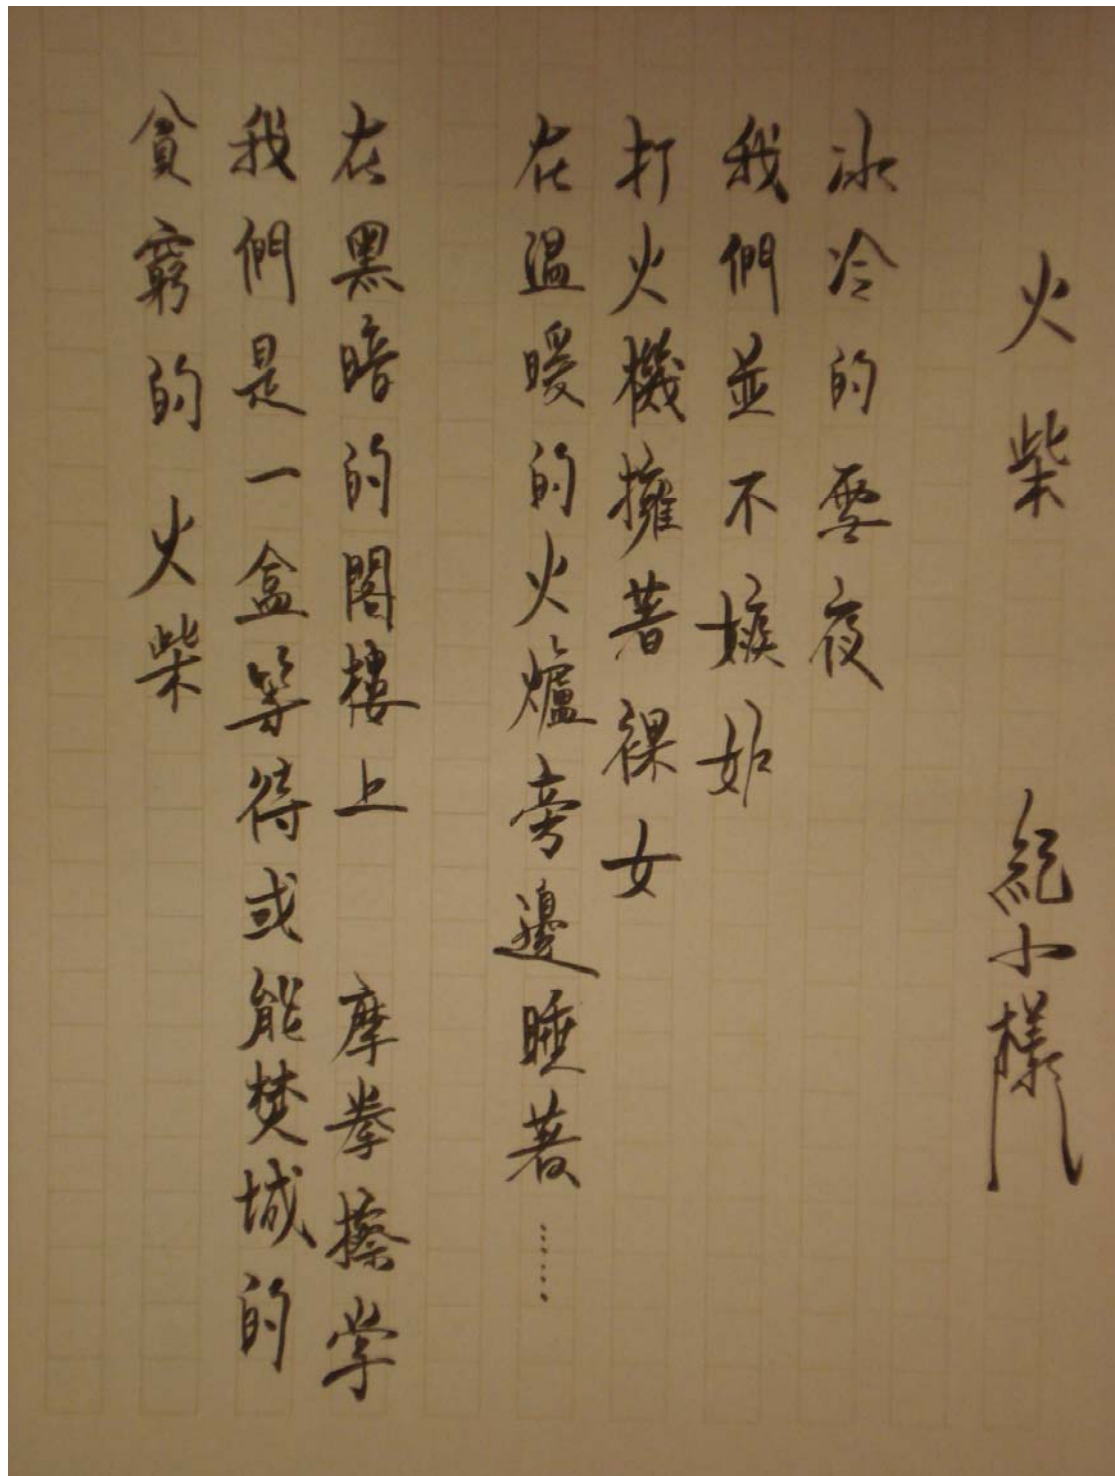 火柴 紀小樣
冰冷的雪夜
我們並不嫉妒
打火機擁著裸女
在溫暖的火爐旁邊睡著……
在黑暗的閣樓上 摩拳擦掌
我們是一盒等待或能焚城的
貧窮的火柴